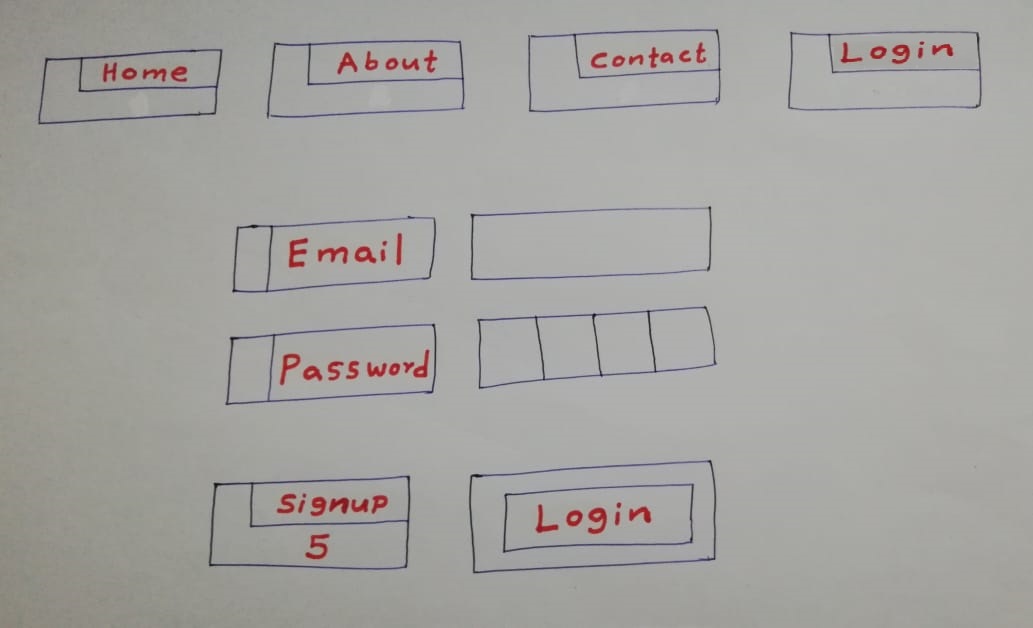 Home About Contact Login
Email
Password
Signup Login
5